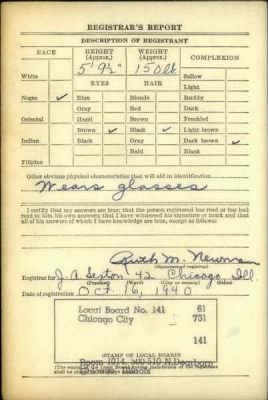 REGISTRAR'S REPORT
DESCRIPTION OF REGISTRANT
RACE HEIGHT (Approx.) WEIGHT (Approx.) COMPLEXION
5' 9½" 150 lb.
White Sallow
EYES HAIR Light
Negro ✓ Blue Blonde Ruddy
Gray Red Dark
Oriental Hazel Brown Freckled
Brown ✓ Black ✓ Light brown
Indian Black Gray Dark brown ✓
Bald Black
Filipino
Other obvious physical characteristics that will aid in identification
Wears glasses
I certify that my answers are true; that the person registered has read or has had
read to him his own answers; that I have witnessed his signature or mark and that
all of his answers of which I have knowledge are true, except as follows:
Ruth M. Newman
(Signature of registrar)
Registrar for J. A. Sexton 42 Chicago, Ill.
(Precinct) (Ward) (City or county) (State)
Date of registration Oct. 16, 1940
Local Board No. 141 61
Chicago City 731
141
Room 1014, 510 N. Dearborn
(STAMP OF LOCAL BOARD)
(The stamp of the Local Board having jurisdiction of the registrant
shall be placed in the above space.)